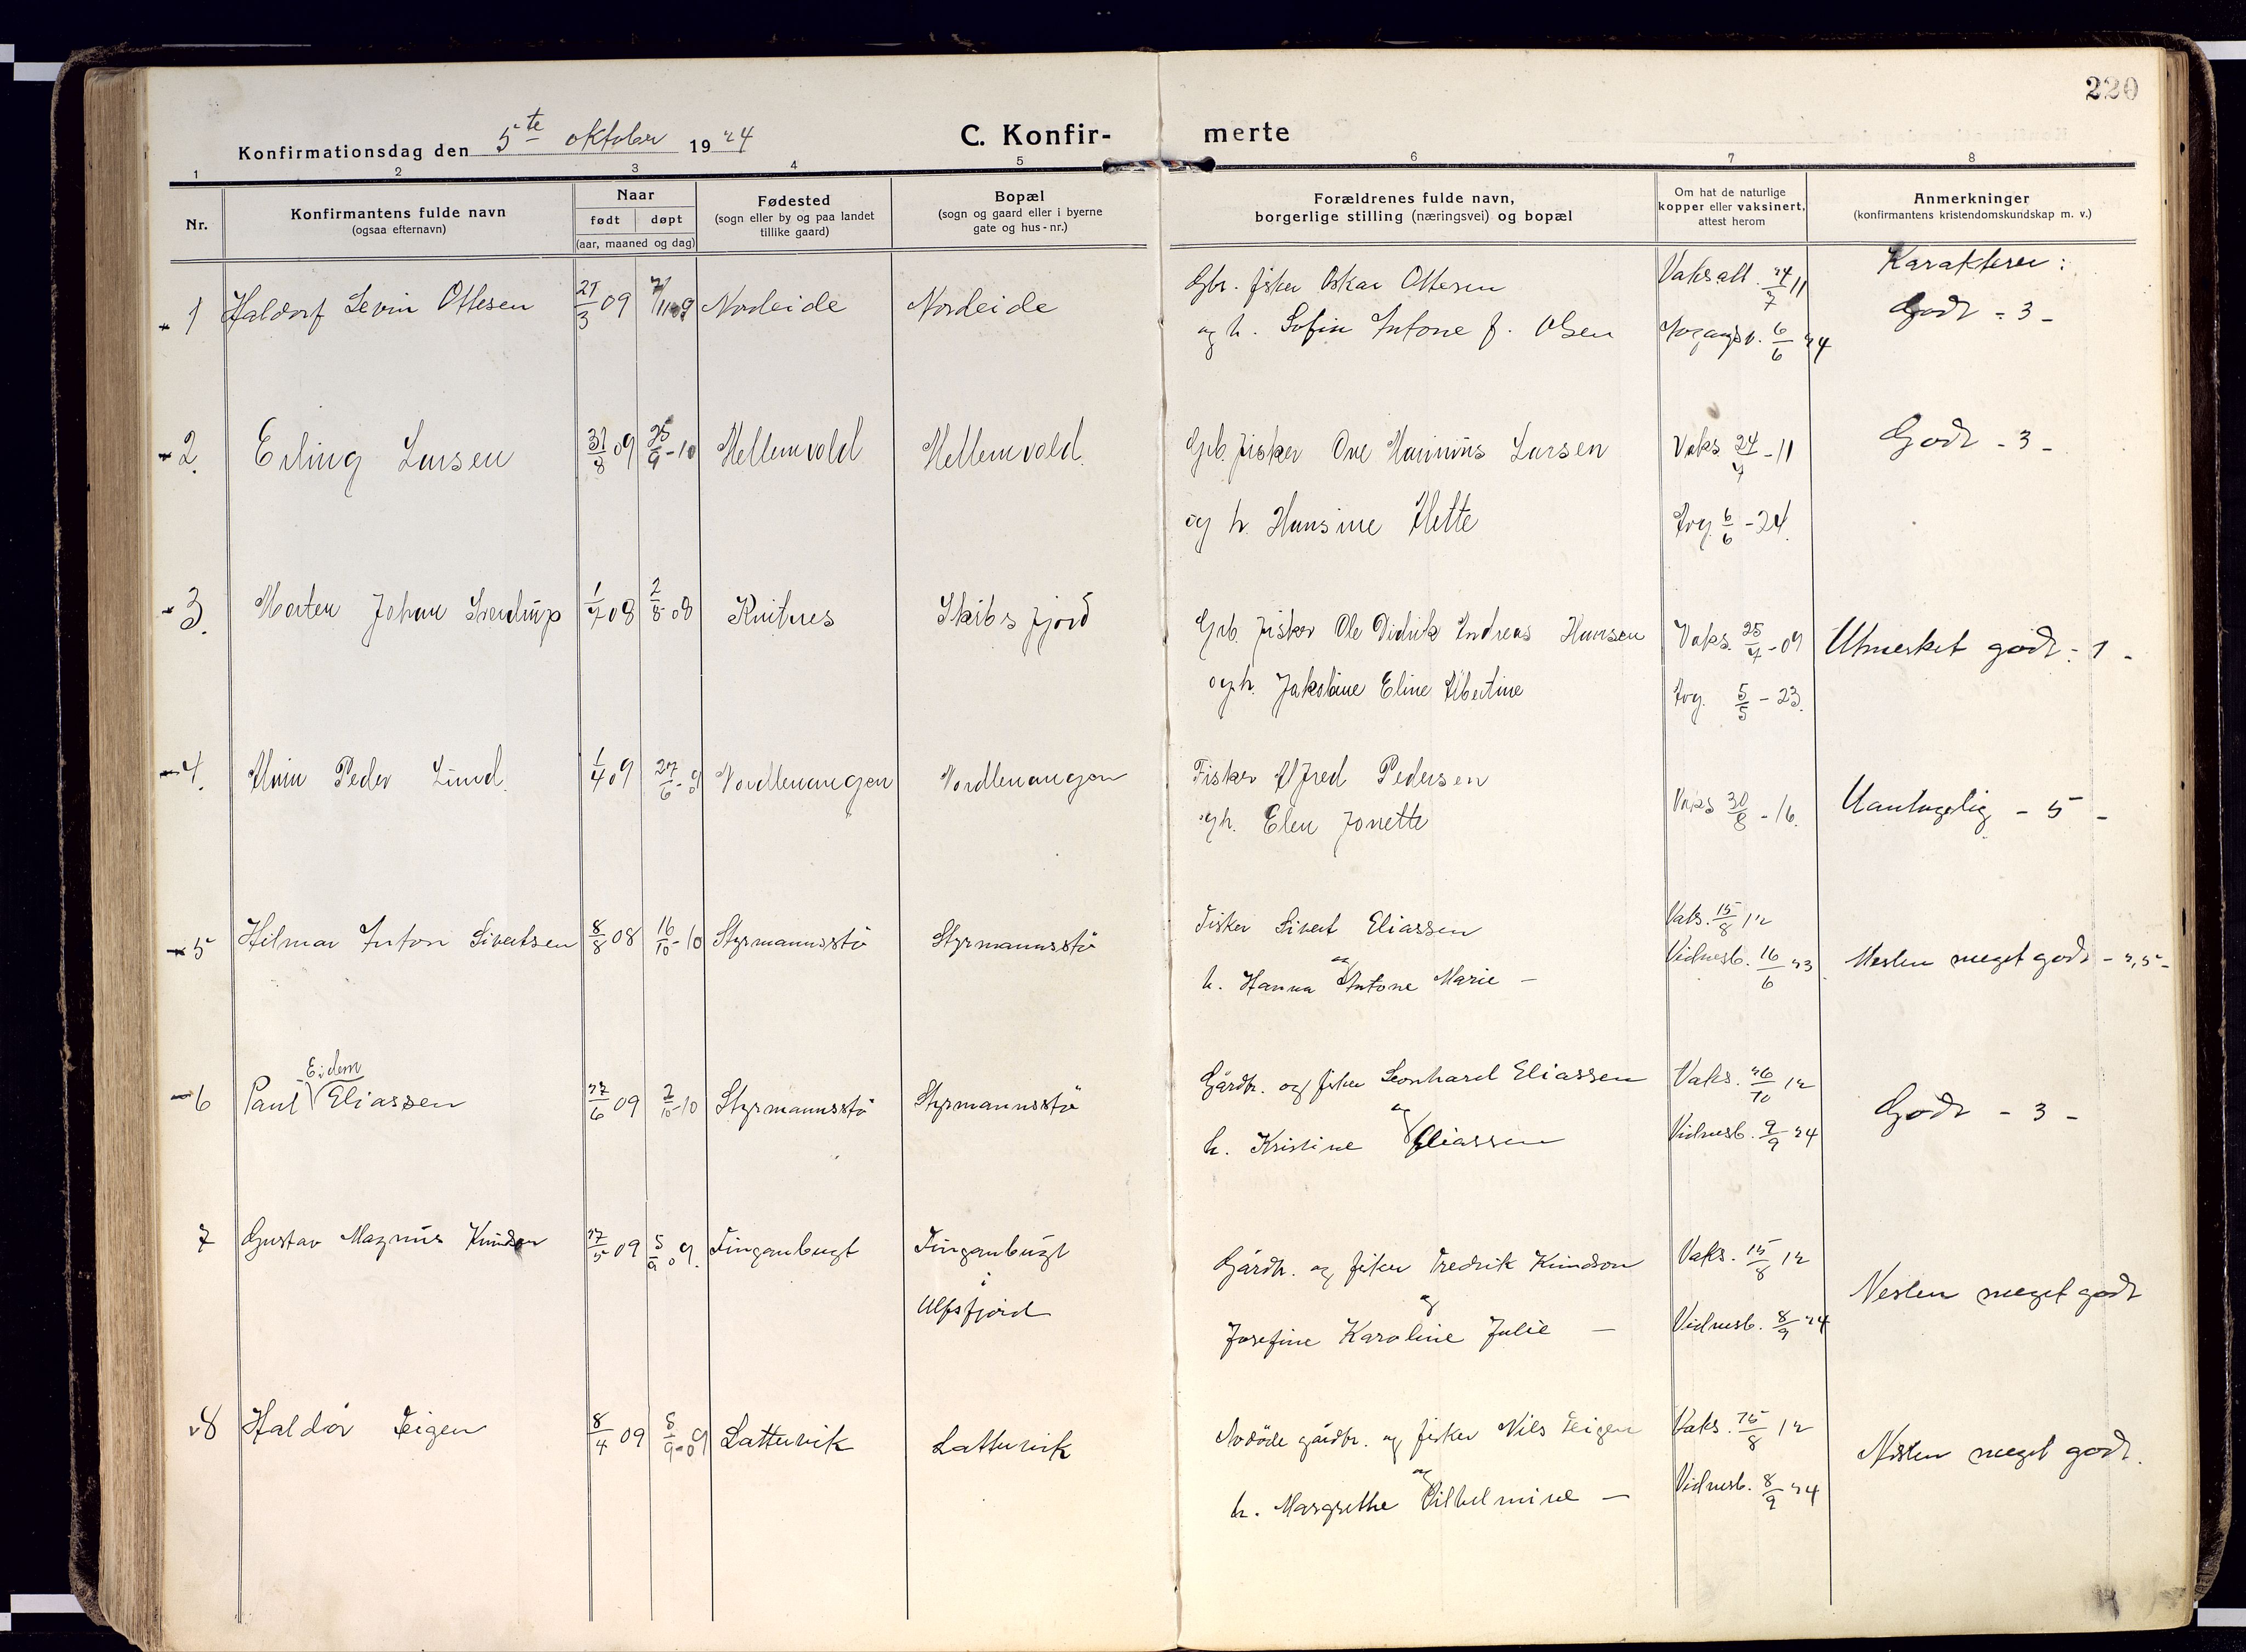 220
Konfirmationsdag den 5te oktober 1924
C. Konfir-
merte
1 2 3 4 5 6 7 8
Nr.
Konfirmantens fulde navn
(ogsaa efternavn)
Naar
født døpt
(aar, maaned og dag)
Fødested
(sogn eller by og paa landet
tillike gaard)
Bopæl
(sogn og gaard eller i byerne
gate og hus-nr.)
Forældrenes fulde navn,
borgerlige stilling (næringsvei) og bopæl
Om hat de naturlige
kopper eller vaksinert,
attest herom
Anmerkninger
(konfirmantens kristendomskundskap m. v.)
Karakterer:
1 Haldorf Levin Ottesen 27/3 09 7/11 09 Nordeide Nordeide Gbr. fisker Oskar Ottesen Vaks.att. 24/7 11 Godt - 3 -
og h. Sofie Antone f. Olsen 6/6 24
2. Erling Larsen 31/8 09 25/9-10 Mellemvold Mellemvold. Grb. fisker Ove Marinius Larsen Vaks. 24/7-11 Godt - 3 -
og h. Hansine Mette Avg. 6/6-24.
3. Morten Johan Sverdrup 1/7 08 2/8 08 Kvitnes Skibsfjord Grb. fisker Ole Didrik Andreas Hansen Vaks. 25/7-09 Utmerket godt - 1 -
og h. Jakobine Eline Albertine Avg. 5/5-23.
4. Peder Lund. 1/4 09 27/6-09 Nordlenangen Nordlenangen Fisker Alfred Pedersen Vaks 30/8-16. Uantagelig - 5 -
og h. Elen Jonette
5 Hilmar Anton Sivertsen 8/8 08 16/10-10 Styrmannsstø Styrmannsstø Fisker Sivert Eliassen Vaks. 15/8 12
og
h. Hanna Antone Marie - Vidnesb. 16/6 23 Nesten meget godt - 2,5 -
Eidem
6 Paul Eliassen 27/6 09 2/10-10 Styrmannsstø Styrmannsstø Gårdbr. og fisker Leonhard Eliassen Vaks. 26/10 12 Godt - 3 -
og
h. Kristine Eliassen Vidnesb. 9/9 24
7 Gustav Magnus Knudsen 27/5 09 5/9 09. Finganbugt Finganbugt
i
Ulfsfjord
Gårdbr. og fisker Fredrik Knudson Vaks. 15/8 12 Nesten meget godt
og
Josefine Karoline Julie - Vidnesb. 8/9 24
8 Haldor Teigen 8/4 09 5/9-09 Lattervik Lattervik Avdøde gårdbr. og fisker Nils Teigen Vaks. 15/8 12 Nesten meget godt.
og
h. Margrethe Vilhelmine - Vidnesb. 8/9 24